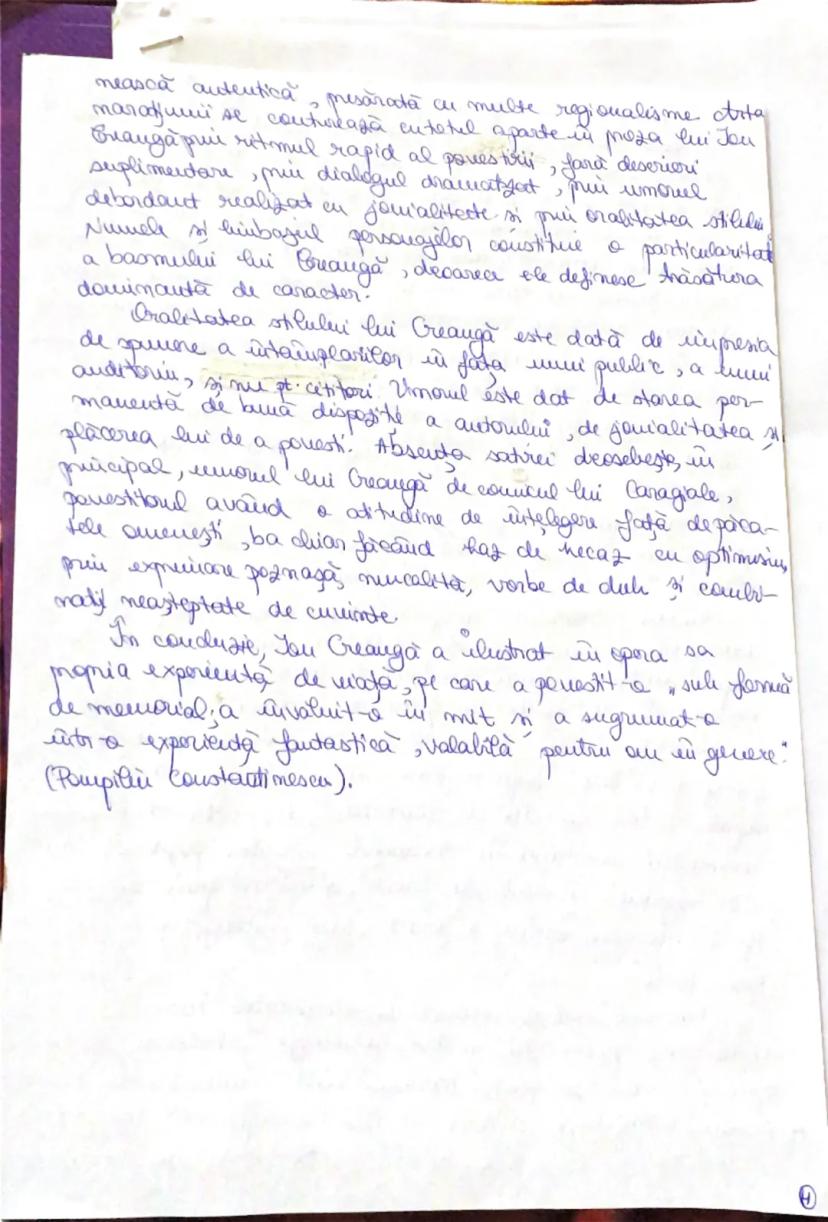 nească autentică, presărată cu multe regionalisme Arta
narațiunii se conturează cu totul aparte în proza lui Ion
Creangă prin ritmul rapid al povestirii, fară descrieri
suplimentare, prin dialogul dramatizat, prin umorul
debordant realizat cu jovialitate și prin oralitatea stilului
Numele și limbajul personajelor constituie o particularitate
a basmului lui Creangă, deoarece ele definesc trăsătura
dominantă de caracter.
Oralitatea stilului lui Creangă este dată de impresia
de spunere a întâmplărilor în fața unui public, a unui
auditoriu, și nu pt. cititori. Umorul este dat de starea per-
manentă de bună dispoziție a autorului, de jovialitatea și
plăcerea lui de a povesti. Absența satirei deosebește, în
principal, umorul lui Creangă de comicul lui Caragiale,
povestitorul având o atitudine de înțelegere față de păca-
tele omenești, ba chiar făcând haz de necaz cu optimism,
prin exprimare poznașă, mucalită, vorbe de duh și combi-
nații neașteptate de cuvinte.
În concluzie, Ion Creangă a ilustrat în opera sa
propria experiență de viață, pe care a povestit-o „sub formă
de memorial, a învăluit-o în mit și a sugrumat-o
într-o experiență fantastică, valabilă pentru om în genere."
(Pompiliu Constantinescu).
4